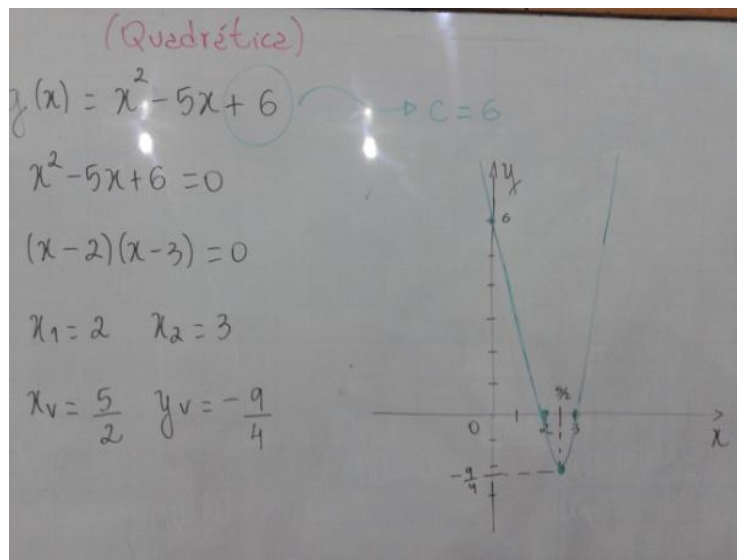 (Quadrática)
g(x) = x² - 5x + 6 → c = 6
x² - 5x + 6 = 0
(x - 2)(x - 3) = 0
x₁ = 2 x₂ = 3
xᵥ = 5/2 yᵥ = -9/4
y
6
5/2
0 2 3
x
-9/4